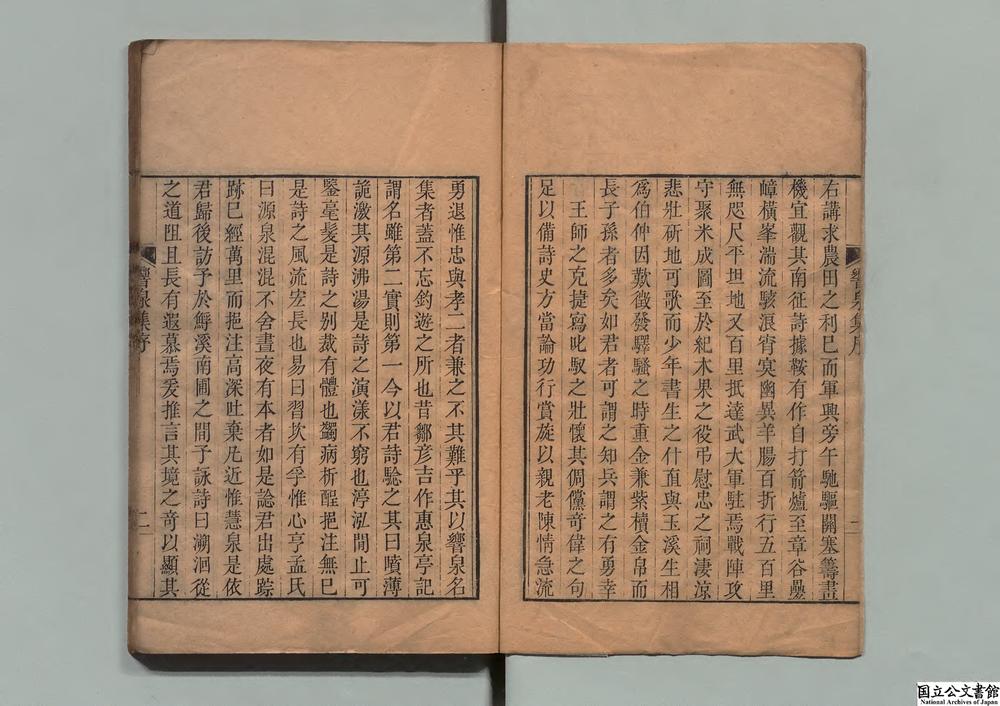 右講求農田之利已而軍興旁午馳驅關塞籌畫
機宜觀其南征詩據鞍有作自打箭爐至章谷疊
嶂橫峯湍流駭浪宵㝠幽異羊腸百折行五百里
無咫尺平坦地又百里抵達武大軍駐焉戰陣攻
守聚米成圖至於紀木果之役弔慰忠之祠淒涼
悲壯斫地可歌而少年書生之什直與玉溪生相
爲伯仲因歎徵發驛騷之時重金兼紫櫝金帛而
長子孫者多矣如君者可謂之知兵謂之有勇幸
王師之克捷寫叱馭之壯懷其倜儻奇偉之句
足以備詩史方當論功行賞旋以親老陳情急流
響泉集序
二
勇退惟忠與孝二者兼之不其難乎其以響泉名
集者蓋不忘釣遊之所也昔鄒彥吉作惠泉亭記
謂名雖第二實則第一今以君詩騐之其曰噴薄
詭激其源沸湯是詩之演漾不窮也渟泓閒止可
鑒毫髮是詩之別裁有體也蠲病析酲挹注無已
是詩之風流宏長也易曰習坎有孚惟心亨孟氏
曰源泉混混不舍晝夜有本者如是諗君出處踪
跡已經萬里而挹注高深吐棄凡近惟慧泉是依
君歸後訪予於鱘溪南圃之間予詠詩曰溯洄從
之道阻且長有遐慕焉爰推言其境之奇以顯其
響泉集序
二
国立公文書館
National Archives of Japan